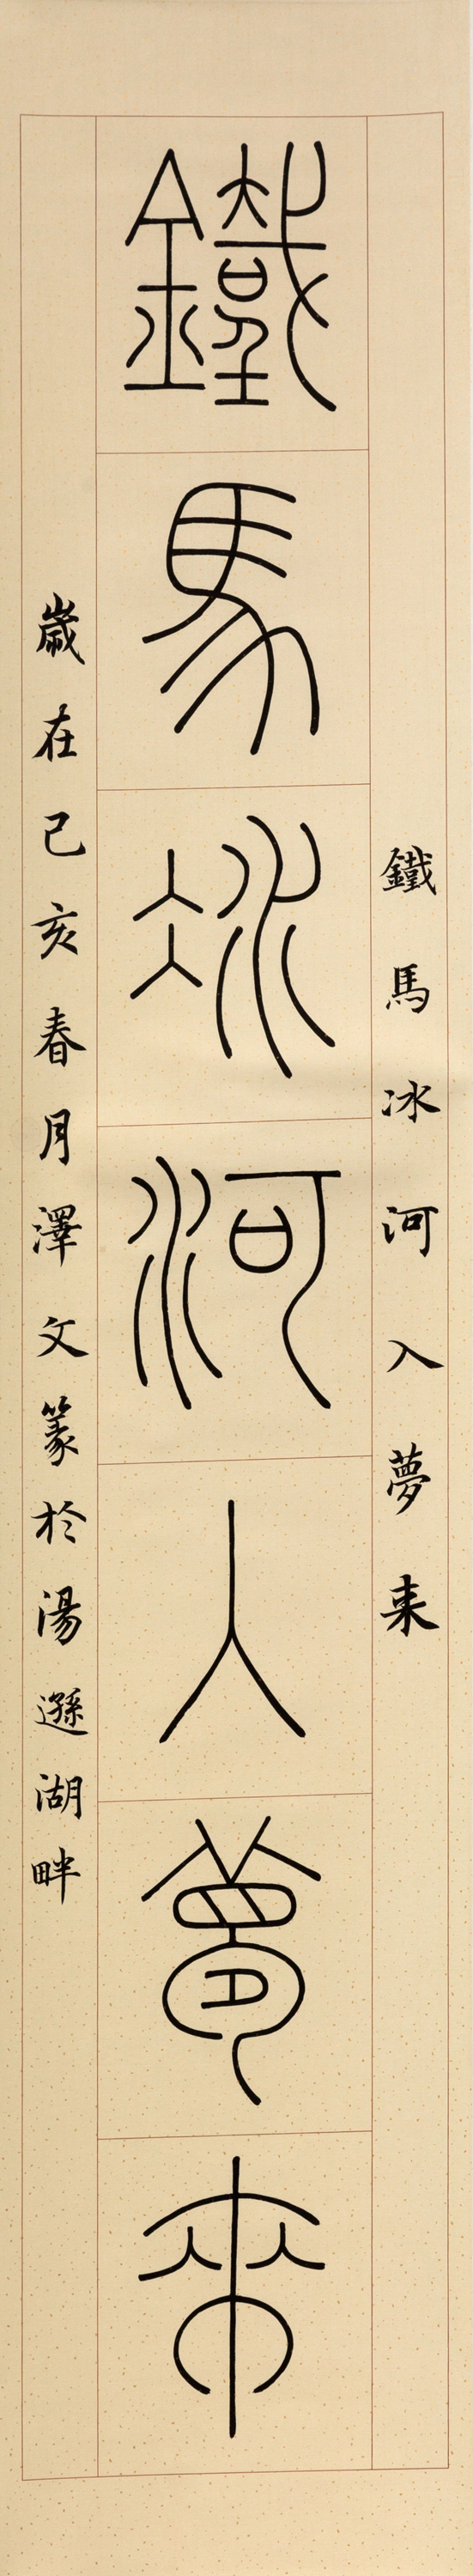 鐵馬冰河入夢來
鐵馬冰河入夢来
歲在己亥春月澤文篆於湯遜湖畔